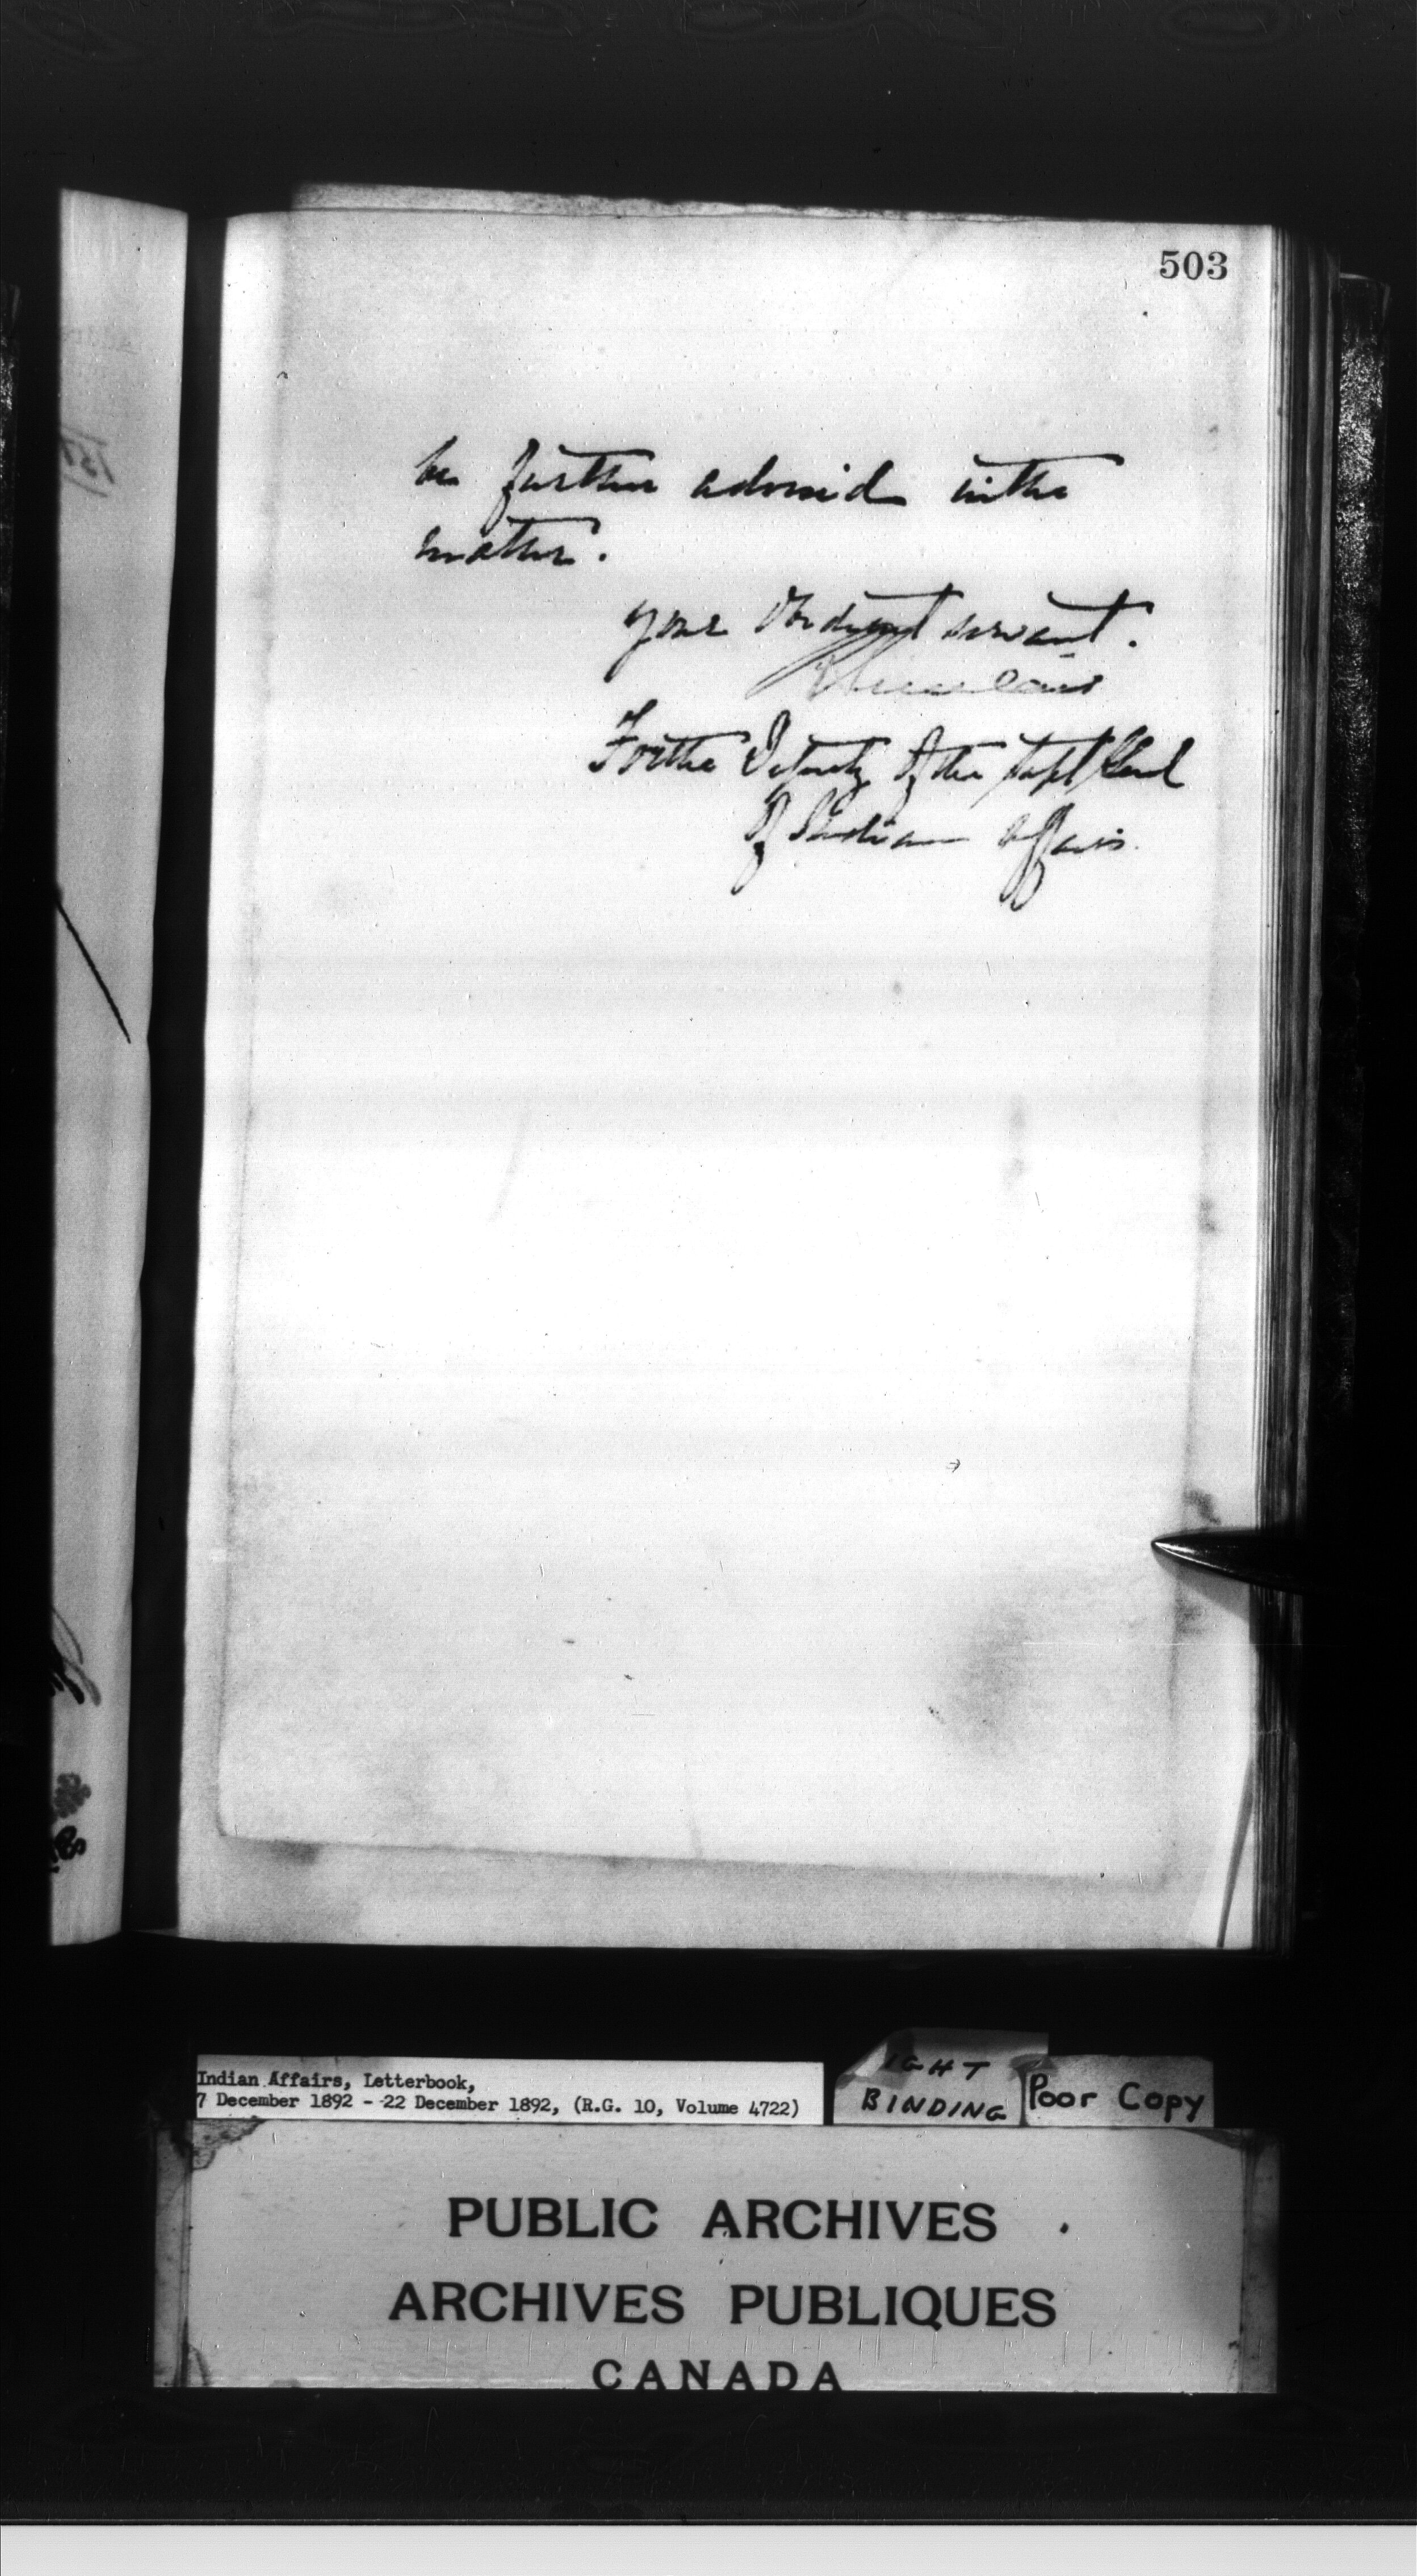 503
be further advised in the
matter.
your obedient servant.
For the Deputy of the Supt Genl
of Indian Affairs.
Indian Affairs, Letterbook,
7 December 1892 - 22 December 1892, (R.G. 10, Volume 4722)
IGHT
BINDING
Poor Copy
PUBLIC ARCHIVES
ARCHIVES PUBLIQUES
CANADA